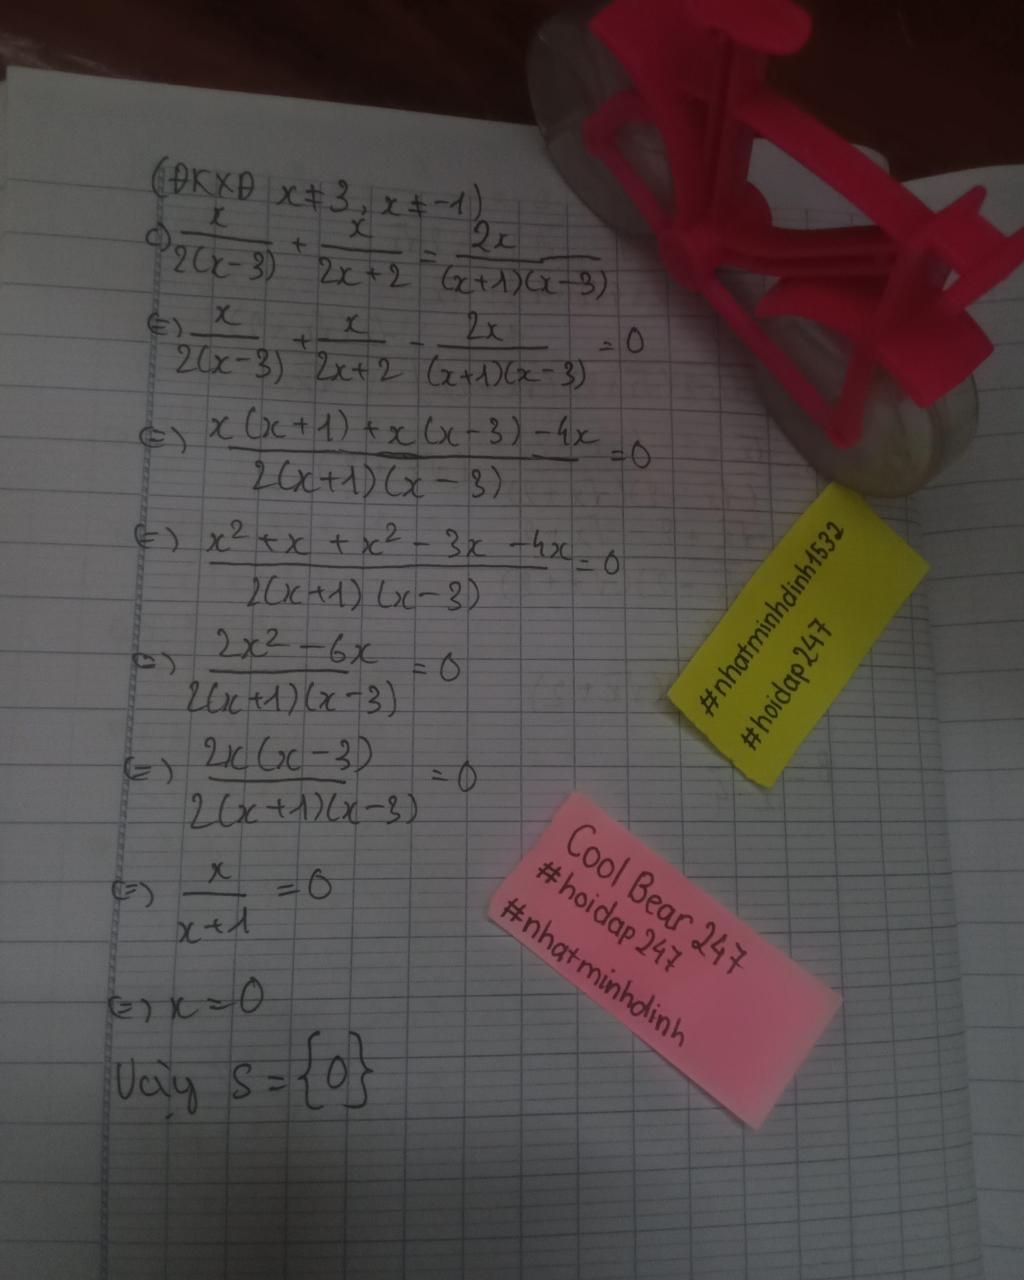 (ĐKXĐ x ≠ 3, x ≠ -1)
c) x/2(x-3) + x/2x+2 = 2x/(x+1)(x-3)
(=) x/2(x-3) + x/2x+2 - 2x/(x+1)(x-3) = 0
(=) x(x+1) + x(x-3) - 4x/2(x+1)(x-3) = 0
(=) x² + x + x² - 3x - 4x/2(x+1)(x-3) = 0
(=) 2x² - 6x/2(x+1)(x-3) = 0
(=) 2x(x-3)/2(x+1)(x-3) = 0
(=) x/x+1 = 0
(=) x = 0
Vậy S = {0}
#nhatminhdinh1532
#hoidap247
Cool Bear 247
#hoidap247
#nhatminhdinh